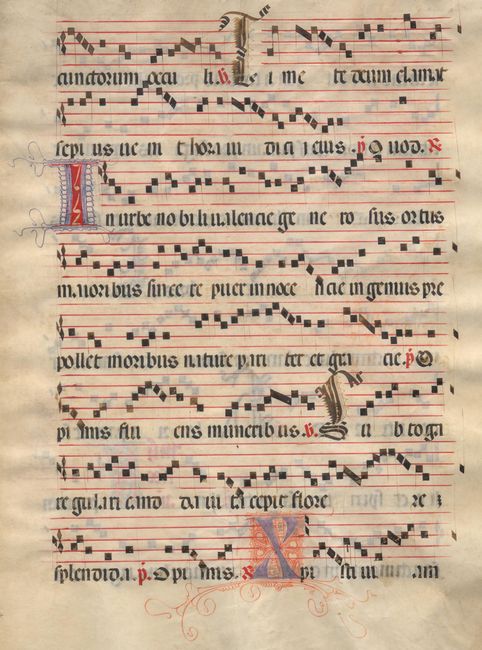 cunctorum occu li. ℣. Ti me te deum clamat
sepi us ve ni t hora iu di ci i eius. p̄ Quod. ℟
In urbe nobili valencie ge ne ro sus ortus
maioribus since re puer innoce ncie ingenuis pre
pollet moribus nature pari ter et gra cie. p̄ O
pi mis flu ens muneribus. ℣. Su b toga
regulari cand da iu ta cepit flore re z
splendida. p̄. Opimis. ℟ Xpi su am